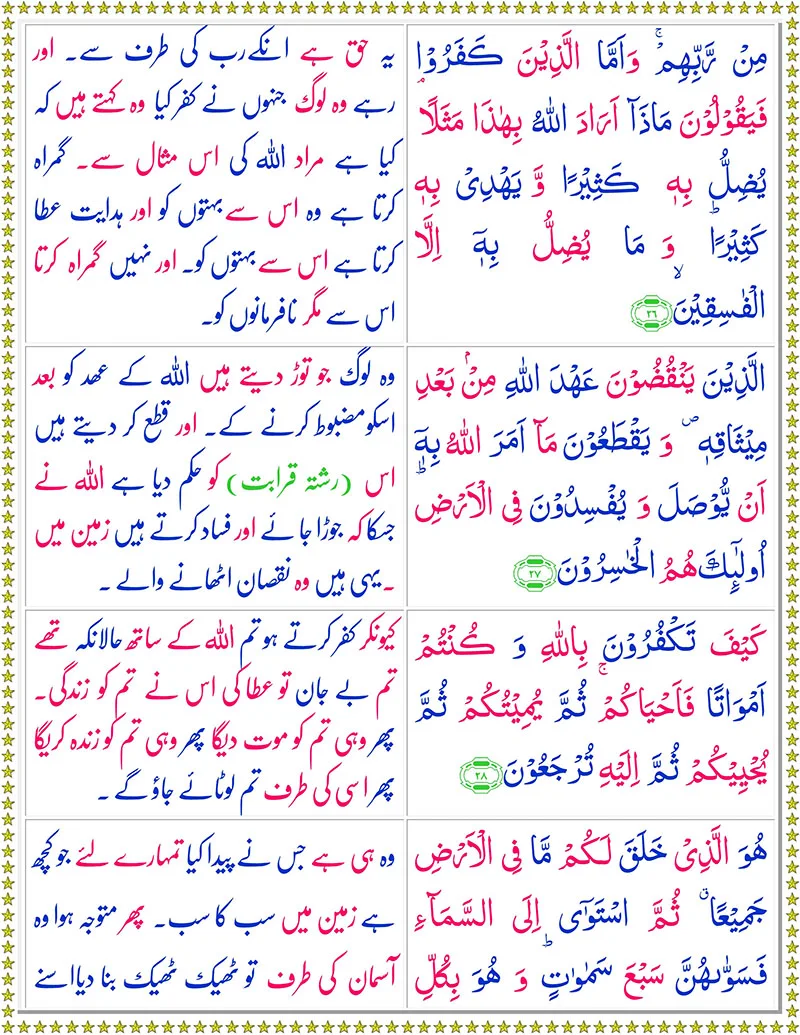 مِنْ رَّبِّهِمْ ۚ وَاَمَّا الَّذِيْنَ كَفَرُوْا
فَيَقُوْلُوْنَ مَاذَآ اَرَادَ اللّٰهُ بِهٰذَا مَثَلًا ۘ
يُضِلُّ بِهٖ كَثِيْرًا وَّ يَهْدِىْ بِهٖ
كَثِيْرًا ؕ وَ مَا يُضِلُّ بِهٖٓ اِلَّا
الْفٰسِقِيْنَ ۙ ﴿۲۶﴾
یہ حق ہے انکے رب کی طرف سے۔ اور
رہے وہ لوگ جنہوں نے کفر کیا وہ کہتے ہیں کہ
کیا ہے مراد اللہ کی اس مثال سے۔ گمراہ
کرتا ہے وہ اس سے بہتوں کو اور ہدایت عطا
کرتا ہے اس سے بہتوں کو۔ اور نہیں گمراہ کرتا
اس سے مگر نافرمانوں کو۔
الَّذِيْنَ يَنْقُضُوْنَ عَهْدَ اللّٰهِ مِنْۢ بَعْدِ
مِيْثَاقِهٖ ۪ وَ يَقْطَعُوْنَ مَآ اَمَرَ اللّٰهُ بِهٖٓ
اَنْ يُّوْصَلَ وَ يُفْسِدُوْنَ فِى الْاَرْضِ ؕ
اُولٰٓئِكَ هُمُ الْخٰسِرُوْنَ ﴿۲۷﴾
وہ لوگ جو توڑ دیتے ہیں اللہ کے عھد کو بعد
اسکو مضبوط کرنے کے۔ اور قطع کر دیتے ہیں
اس (رشتہ قرابت) کو حکم دیا ہے اللہ نے
جسکا کہ جوڑا جائے اور فساد کرتے ہیں زمین میں
۔یہی ہیں وہ نقصان اٹھانے والے ۔
كَيْفَ تَكْفُرُوْنَ بِاللّٰهِ وَ كُنْتُمْ
اَمْوَاتًا فَاَحْيَاكُمْ ۚ ثُمَّ يُمِيْتُكُمْ ثُمَّ
يُحْيِيْكُمْ ثُمَّ اِلَيْهِ تُرْجَعُوْنَ ﴿۲۸﴾
کیونکر کفر کرتے ہو تم اللہ کے ساتھ حالانکہ تھے
تم بے جان تو عطا کی اس نے تم کو زندگی۔
پھر وہی تم کو موت دیگا پھر وہی تم کو زندہ کریگا
پھر اسی کی طرف تم لوٹائے جاؤ گے ۔
هُوَ الَّذِىْ خَلَقَ لَكُمْ مَّا فِى الْاَرْضِ
جَمِيْعًا ۗ ثُمَّ اسْتَوٰٓى اِلَى السَّمَآءِ
فَسَوّٰىهُنَّ سَبْعَ سَمٰوٰتٍ ؕ وَ هُوَ بِكُلِّ
وہ ہی ہے جس نے پیدا کیا تمہارے لئے جو کچھ
ہے زمین میں سب کا سب۔ پھر متوجہ ہوا وہ
آسمان کی طرف تو ٹھیک ٹھیک بنا دیا اسنے